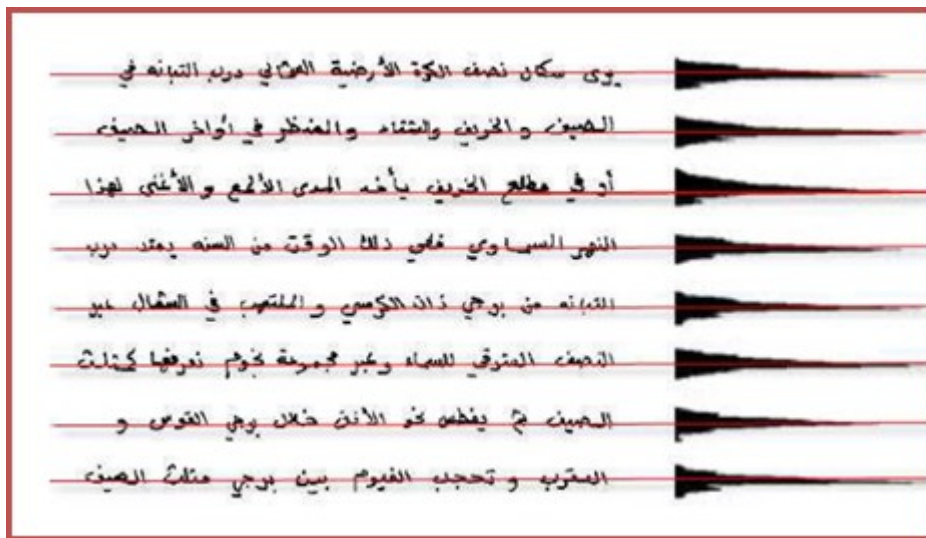 يرى سكان نصف الكرة الأرضية الشمالي درب التبانه في
الصيف و الخريف والشتاء والمنظر في أواخر الصيف
أو في مطلع الخريف يأخذ المدى الألمع و الأغنى لهذا
النهر السماوي ففي ذلك الوقت من السنه يمتد درب
التبانه من برجي ذات الكرسي و الملتهب في الشمال عبر
النصف الشرقي للسماء وعبر مجموعة نجوم نعرفها كمثلث
الصيف ثم يغطس نحو الأفق خلال برجي القوس و
العقرب و تحجب الغيوم بين برجي مثلث الصيف